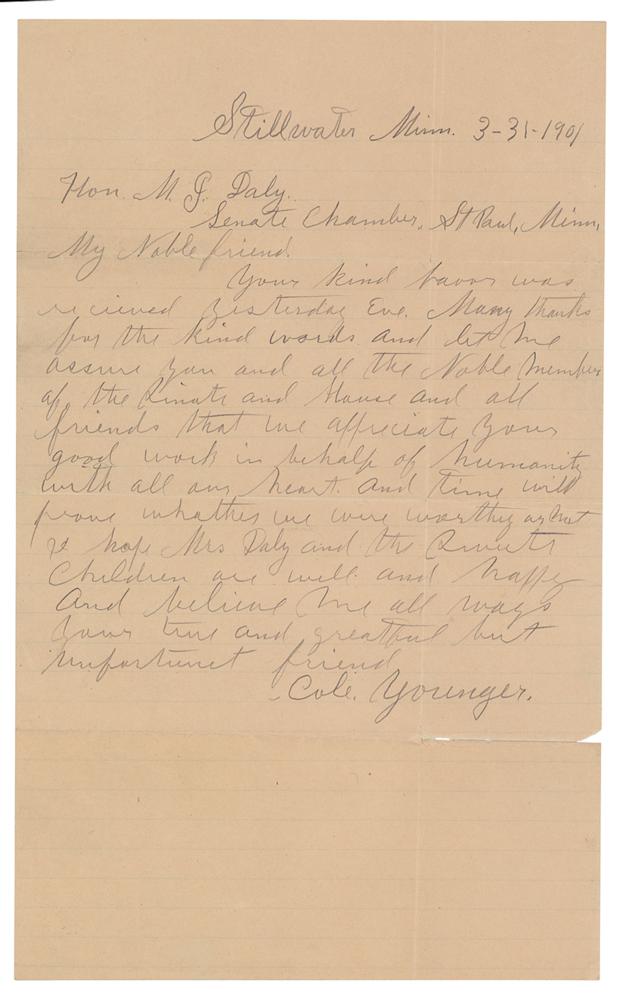 Stillwater Minn. 3-31-1901
Hon. M. J. Daly.
Senate Chamber, St Paul, Minn,
My Noble friend.
Your kind favor was
recieved yesterday Eve. Many thanks
for the kind words and let me
assure you and all the Noble members
of the Sinate and House and all
friends that we appreciate your
good work in behalf of humanity
with all our heart. And time will
prove whather we were worthy or not
I hope Mrs Daly and the Sweete
Children are well and happy
And believe me all ways
your true and greatful but
unfortunet friend
Cole. Younger.